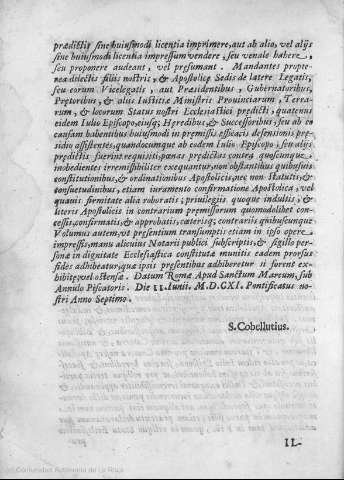 prædictis sine huiusmodi licentia imprimere, aut ab alio, vel alijs
sine huiusmodi licentia impressum vendere, seu venale habere,
seu proponere audeant, vel præsumant. Mandantes propte-
rea dilectis filijs nostris, & Apostolicæ Sedis de latere Legatis,
seu eorum Vicelegatis, aut Præsidentibus, Gubernatoribus,
Prætoribus, & alijs Iustitiæ Ministris Prouinciarum, Terra-
rum, & locorum Status nostri Ecclesiastici prædicti, quatenus
eidem Iulio Episcopo, eiusq; Hæredibus, & Successoribus, seu ab eo
causam habentibus huiusmodi in præmissis efficacis defensionis præ-
sidio assistentes, quandocumque ab eodem Iulio Episcopo, seu alijs
prædictis fuerint requisiti, pœnas prædictas contra quoscunque
inobedientes irremissibiliter exequantur, non obstantibus quibusuis
constitutionibus, & ordinationibus Apostolicis, nec non Statutis, &
consuetudinibus, etiam iuramento confirmatione Apostolica, vel
quauis firmitate alia roboratis; priuilegijs quoque indultis, &
literis Apostolicis in contrarium præmissorum quomodolibet con-
cessis, confirmatis, & approbatis, cæterisq; contrarijs quibuscunque
Volumus autem, vt præsentium transumptis etiam in ipso opere
impressis, manu alicuius Notarij publici subscriptis, & sigillo per-
sonæ in dignitate Ecclesiastica constitutæ munitis eadem prorsus
fides adhibeatur, quæ ipsis præsentibus adhiberetur si forent ex-
hibitæ, vel ostensæ. Datum Romæ Apud Sanctum Marcum, sub
Annulo Piscatoris. Die 11. Iunij. M.D.CXI. Pontificatus no-
stri Anno Septimo.
S. Cobellutius.
IL-
Comunidad Autónoma de La Rioja